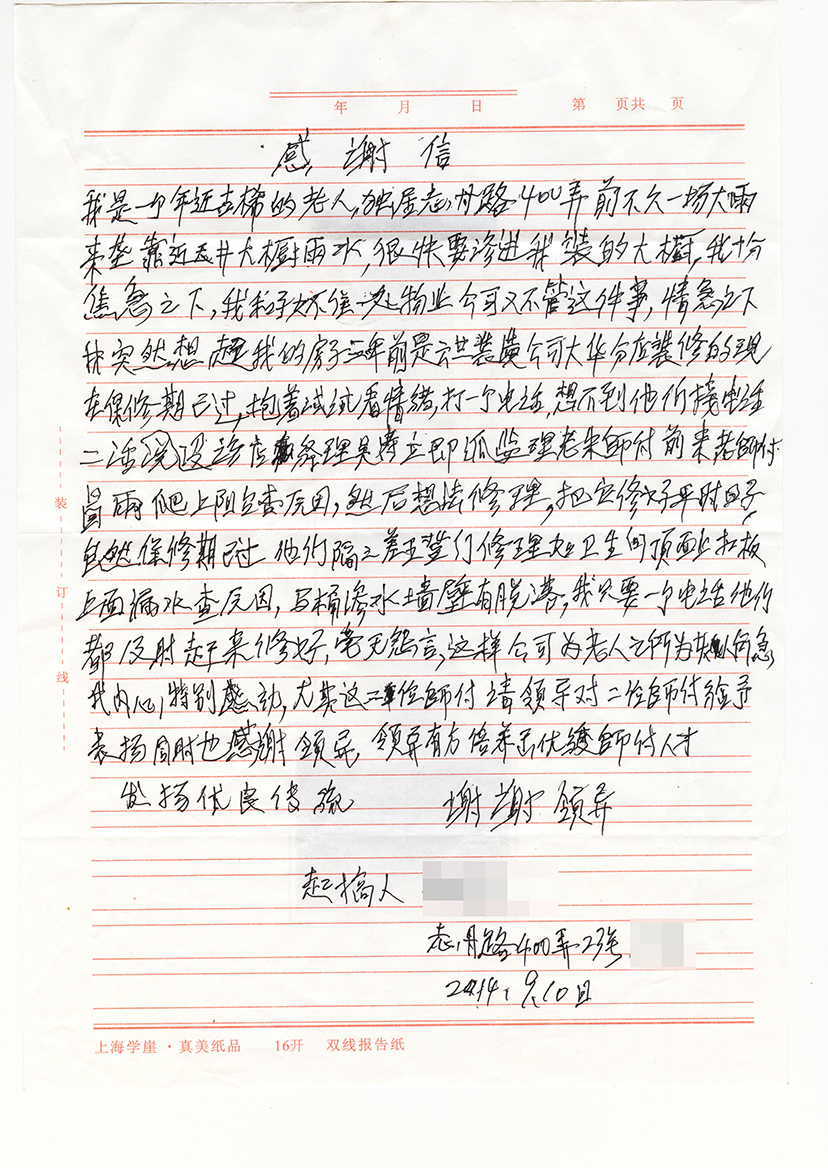 年 月 日 第 页共 页
感谢信
我是一个年近古稀的老人,独居志丹路400弄前不久一场大雨
来垫靠近天井大橱雨水,很快要渗进我装的大橱,我十分
焦急之下,我和子女不住一处物业公司又不管这件事,情急之下
我突然想起我的房子三年前是公共装潢公司大华分店装修的现
在保修期已过,抱着试试看情绪,打一个电话,想不到他们接电话
二话没说该店经理吴涛立即派监理老朱师付前来老师付
冒雨爬上阻台查原因,然后想法修理,把它修好平时日子
虽然保修期已过他们隔三差五登门修理处卫生间顶面上扣板
上面漏水查原因,马桶渗水墙壁有脱落,我只要一个电话他们
都及时赶来修好,毫无怨言,这样公司为老人之所为
我内心特别感动,尤其这二位师付请领导对二位师付给予
表扬同时也感谢领导,领导有方倍养出优秀师付人才
发扬优良传统 谢谢领导
起搞人
志丹路400弄23号
2014、9、10日
装
订
线
上海学崖·真美纸品 16开 双线报告纸